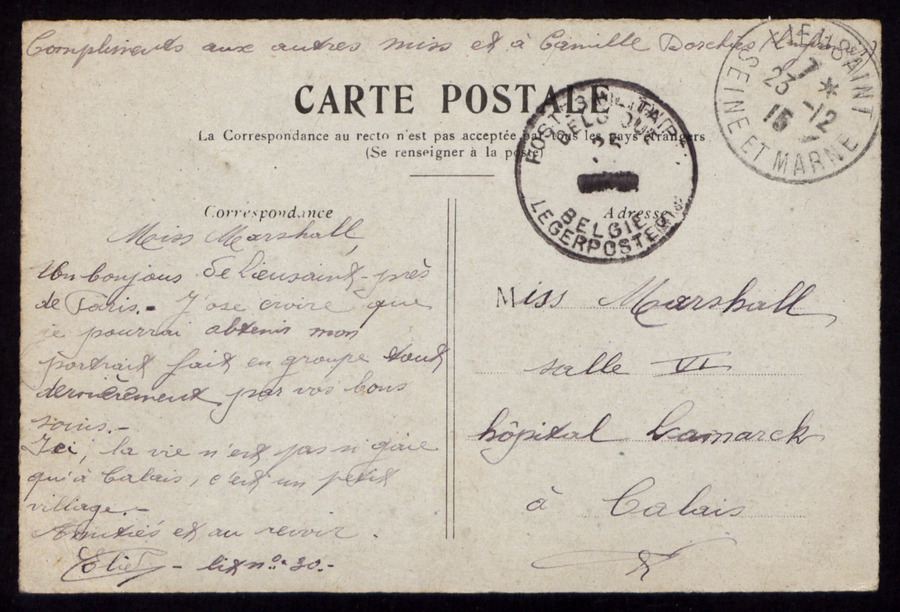 Compliments aux autres miss et à Camille
CARTE POSTALE
La Correspondance au recto n'est pas acceptée par tous les pays étrangers
(Se renseigner à la poste)
POSTES MILITAIRES
BELGIQUE
BELGIE
LEGERPOSTERIJ
LIEUSAINT
7 *
23 -12
15
SEINE ET MARNE
Correspondance
Miss Marshall,
Un bonjour de Lieusaint, près
de Paris.- J'ose croire que
je pourrai obtenir mon
portrait fait en groupe tout
dernièrement par vos bons
soins.-
Ici, la vie n'est pas si gaie
qu'à Calais, c'est un petit
village.-
Amitiés et au revoir.
- lit n° 30.-
Adresse
Miss Marshall
salle VI
hôpital Lamarck
à Calais